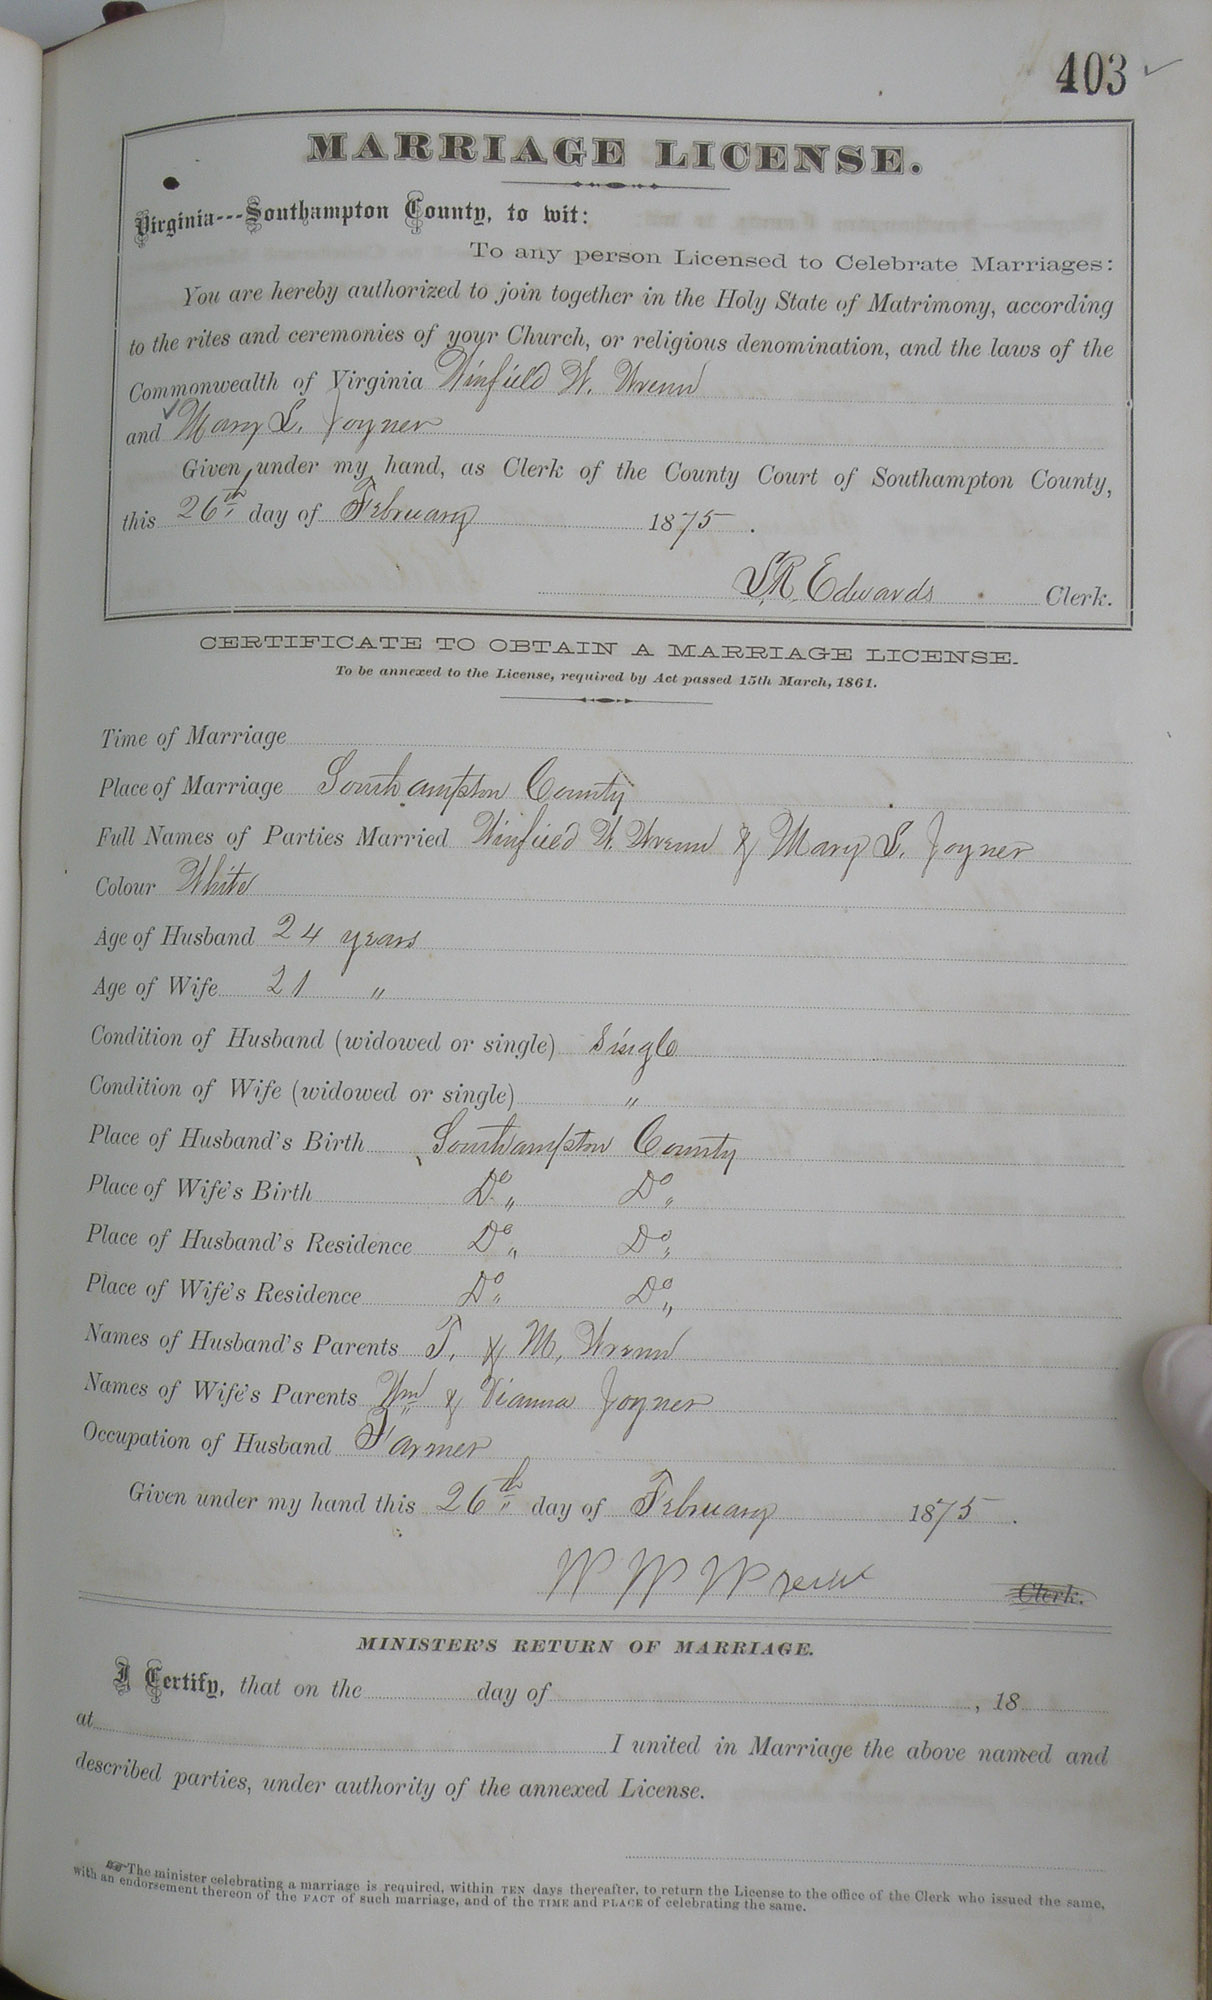 403 ✓
MARRIAGE LICENSE.
Virginia---Southampton County, to wit:
To any person Licensed to Celebrate Marriages:
You are hereby authorized to join together in the Holy State of Matrimony, according
to the rites and ceremonies of your Church, or religious denomination, and the laws of the
Commonwealth of Virginia Winfield W. Wrenn
and Mary S. Joyner
Given under my hand, as Clerk of the County Court of Southampton County,
this 26th day of February 1875.
S.R. Edwards Clerk.
CERTIFICATE TO OBTAIN A MARRIAGE LICENSE.
To be annexed to the License, required by Act passed 15th March, 1861.
Time of Marriage
Place of Marriage Southampton County
Full Names of Parties Married Winfield W. Wrenn & Mary S. Joyner
Colour White
Age of Husband 24 years
Age of Wife 21 "
Condition of Husband (widowed or single) Single
Condition of Wife (widowed or single) "
Place of Husband's Birth Southampton County
Place of Wife's Birth Do " Do "
Place of Husband's Residence Do " Do "
Place of Wife's Residence Do " Do "
Names of Husband's Parents T. & M. Wrenn
Names of Wife's Parents Wm & Vianna Joyner
Occupation of Husband Farmer
Given under my hand this 26th day of February 1875.
W W Wrenn Clerk.
MINISTER'S RETURN OF MARRIAGE.
I Certify, that on the day of , 18
at I united in Marriage the above named and
described parties, under authority of the annexed License.
The minister celebrating a marriage is required, within TEN days thereafter, to return the License to the office of the Clerk who issued the same,
with an endorsement thereon of the FACT of such marriage, and of the TIME and PLACE of celebrating the same.